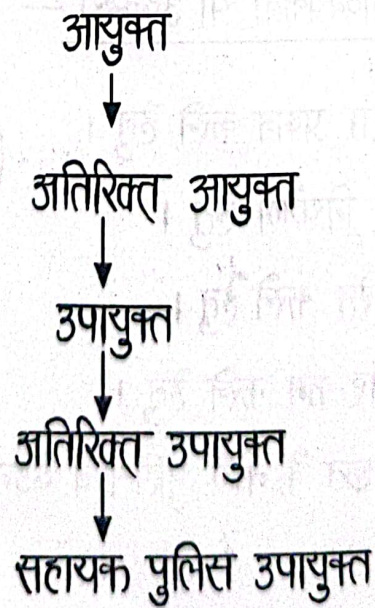 आयुक्त
अतिरिक्त आयुक्त
उपायुक्त
अतिरिक्त उपायुक्त
सहायक पुलिस उपायुक्त